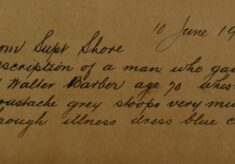 10 June 19
om Supt Shore
scription of a man who ga
Walter Barber age 70 whis
oustache grey stoops very mu
rough illness dress blue c